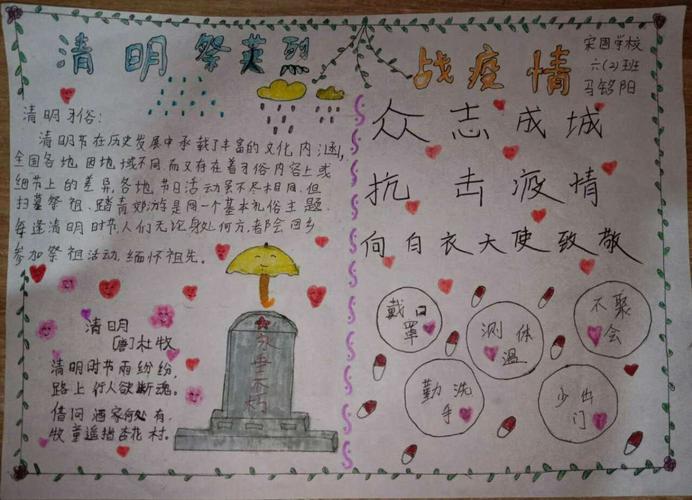 清明祭英烈
清明习俗:
清明节在历史发展中承载了丰富的文化内涵,
全国各地因地域不同,而又存在着习俗内容上或
细节上的差异,各地节日活动虽不尽相同,但
扫墓祭祖、踏青郊游是同一个基本礼俗主题.
每逢清明时节,人们无论身处何方,都会回乡
参加祭祖活动,缅怀祖先。
清明
[唐]杜牧
清明时节雨纷纷,
路上行人欲断魂。
借问酒家何处有,
牧童遥指杏花村。
永垂不朽
战疫情
宋固学校
六(2)班
马铭阳
众志成城
抗击疫情
向白衣天使致敬
戴口
罩
测体
温
不聚
会
勤洗
手
少出
门